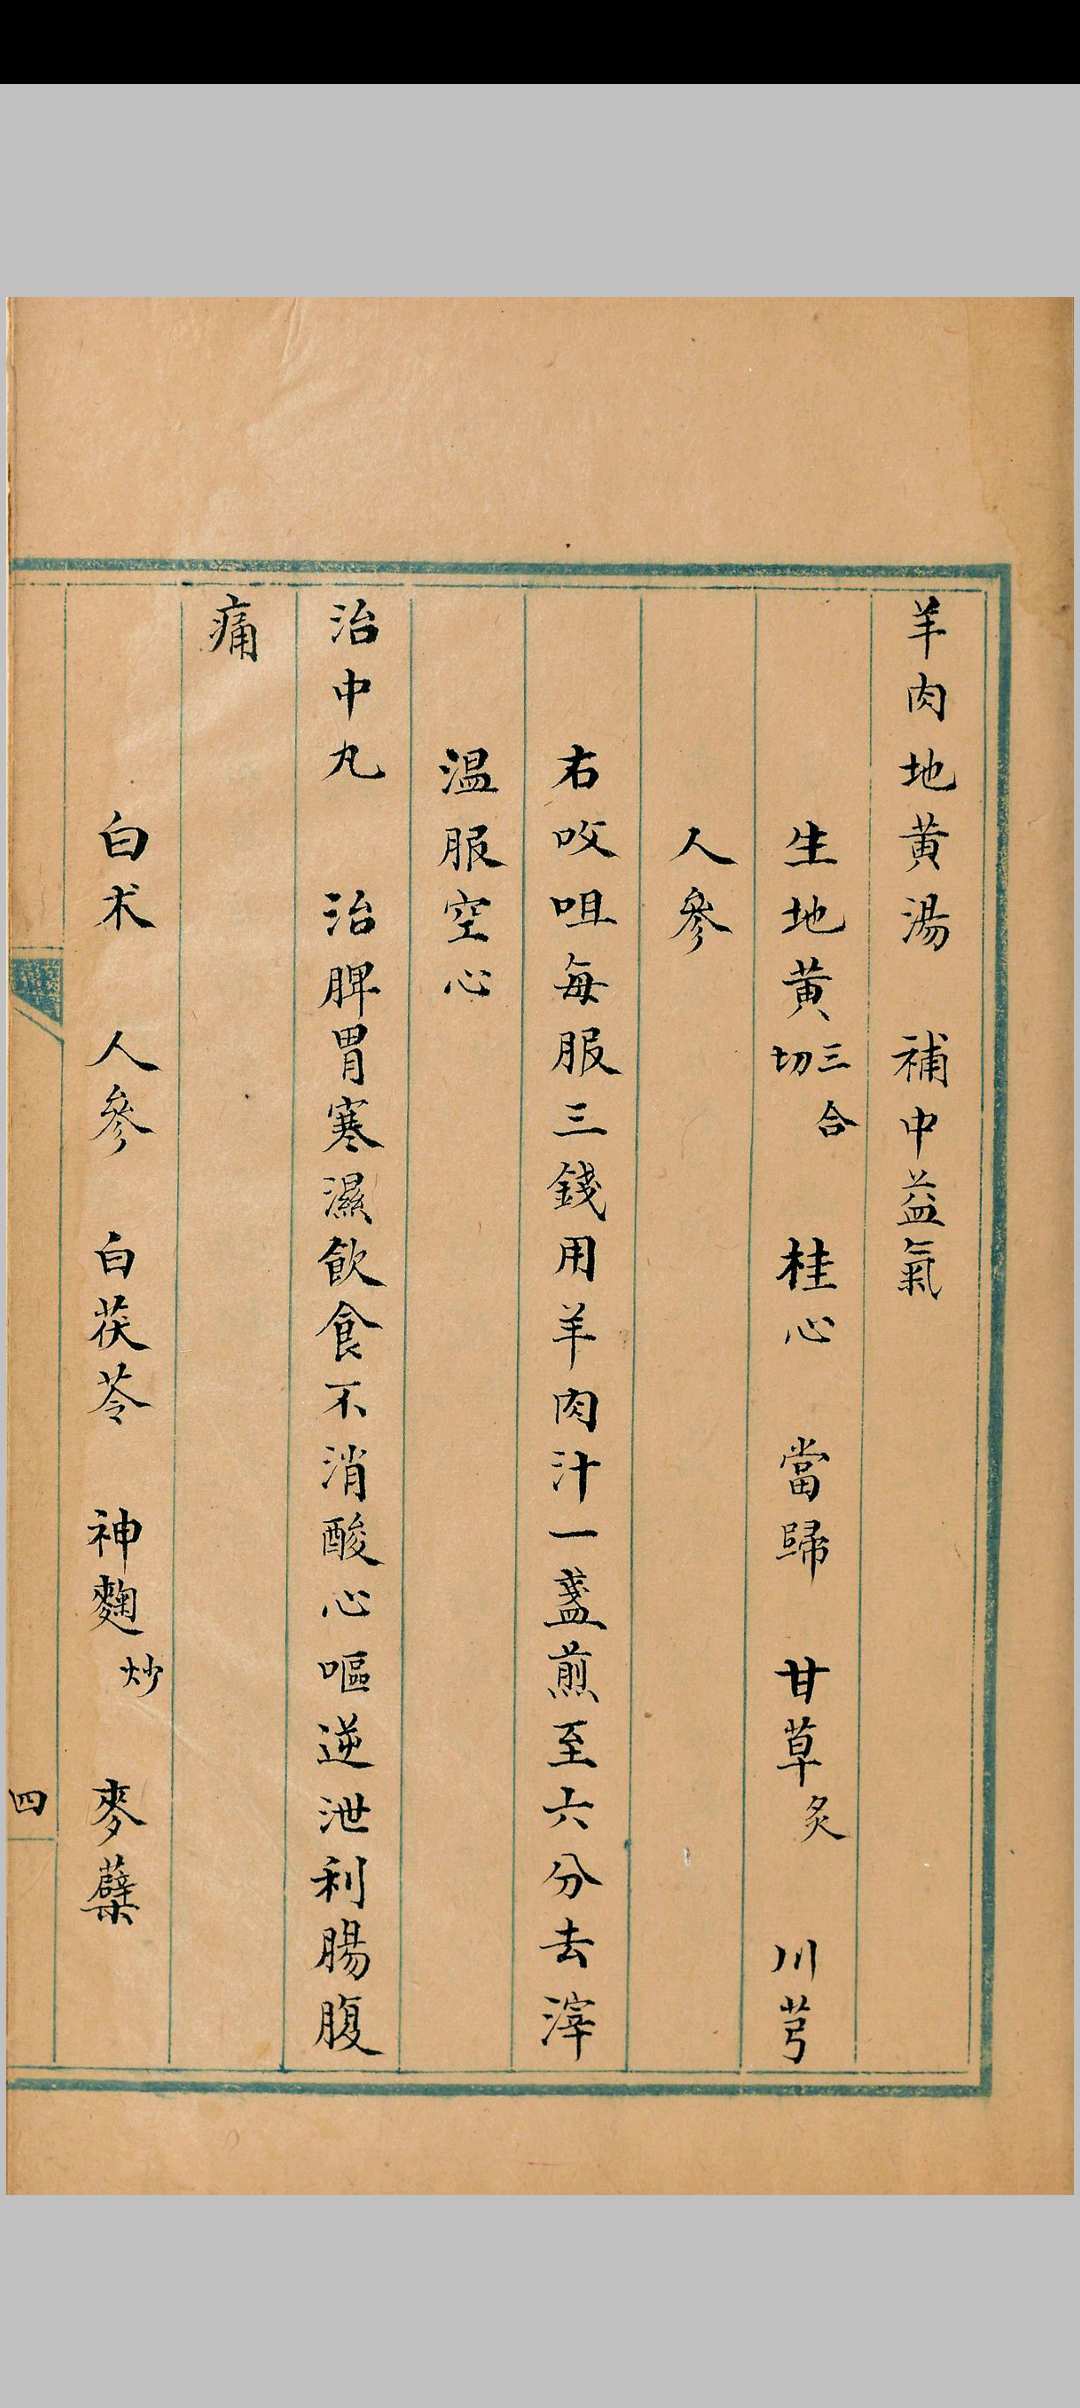 羊肉地黄湯　補中益氣
生地黄三合切　桂心　當歸　甘草炙　川芎
人參
右㕮咀每服三錢用羊肉汁一盞煎至六分去滓
温服空心
治中丸　治脾胃寒濕飲食不消酸心嘔逆泄利腸腹
痛
白朮　人參　白茯苓　神麴炒　麥蘖
四